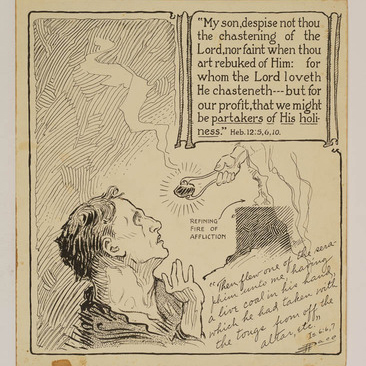 "My son, despise not thou
the chastening of the
Lord, nor faint when thou
art rebuked of Him: for
whom the Lord loveth
He chasteneth---but for
our profit, that we might
be partakers of His holi-
ness." Heb. 12:5,6,10.
REFINING
FIRE OF
AFFLICTION
"Then flew one of the sera-
phim unto me, having
a live coal in his hand,
which he had taken with
the tongs from off the
altar, etc."
Isa. 6,7